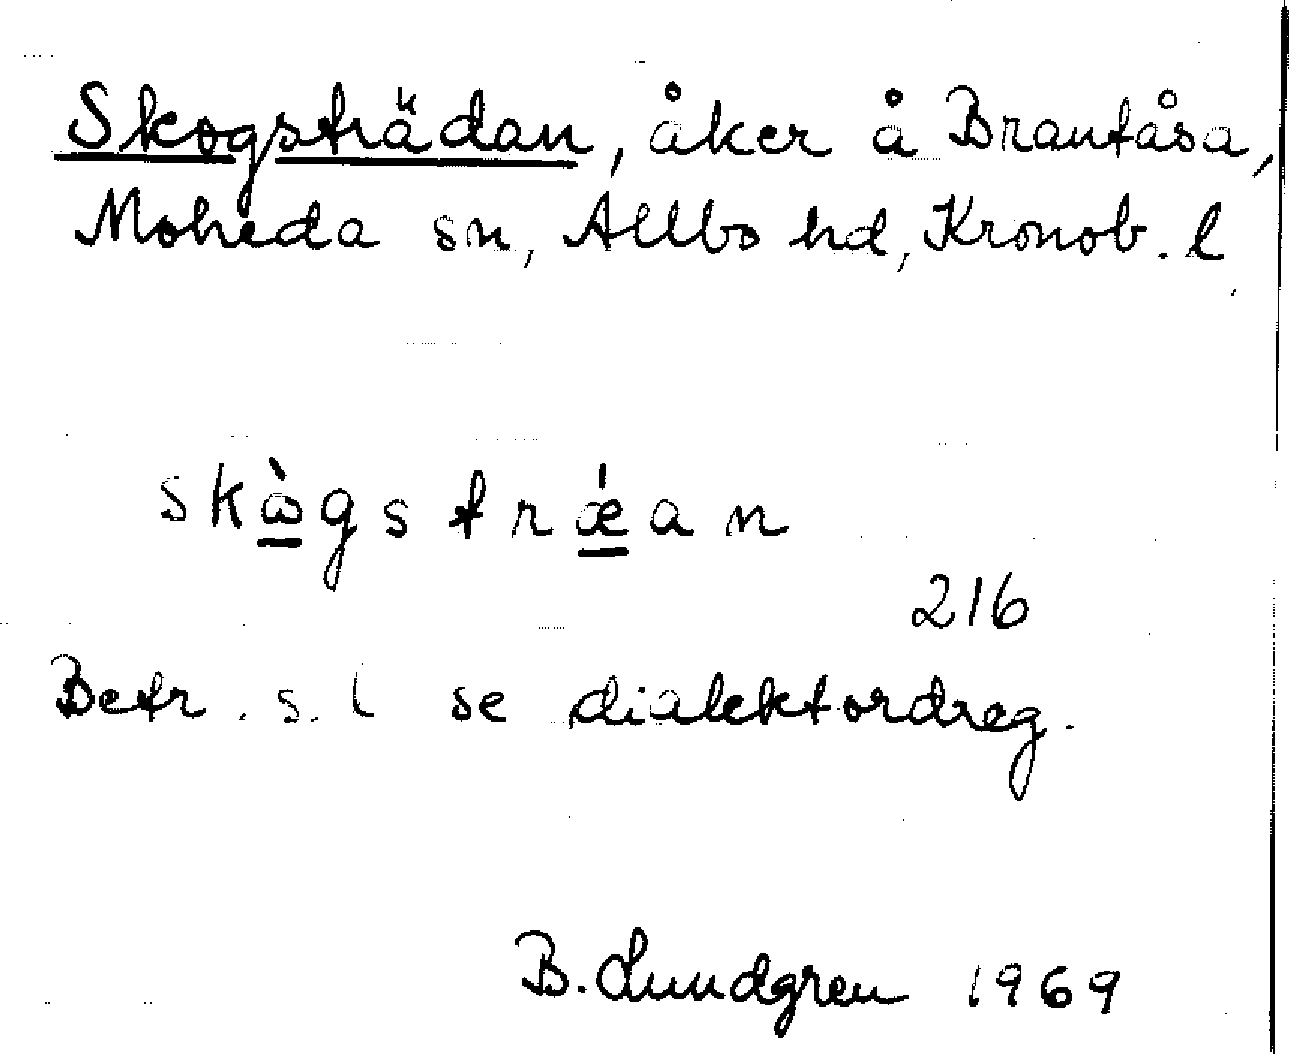 Skogsträdan, åker å Brantåsa,
Moheda sn, Allbo hd, Kronob. l
skɷ̀gstrǽan
216
Betr. s. l se dialektordreg.
B. Lundgren 1969